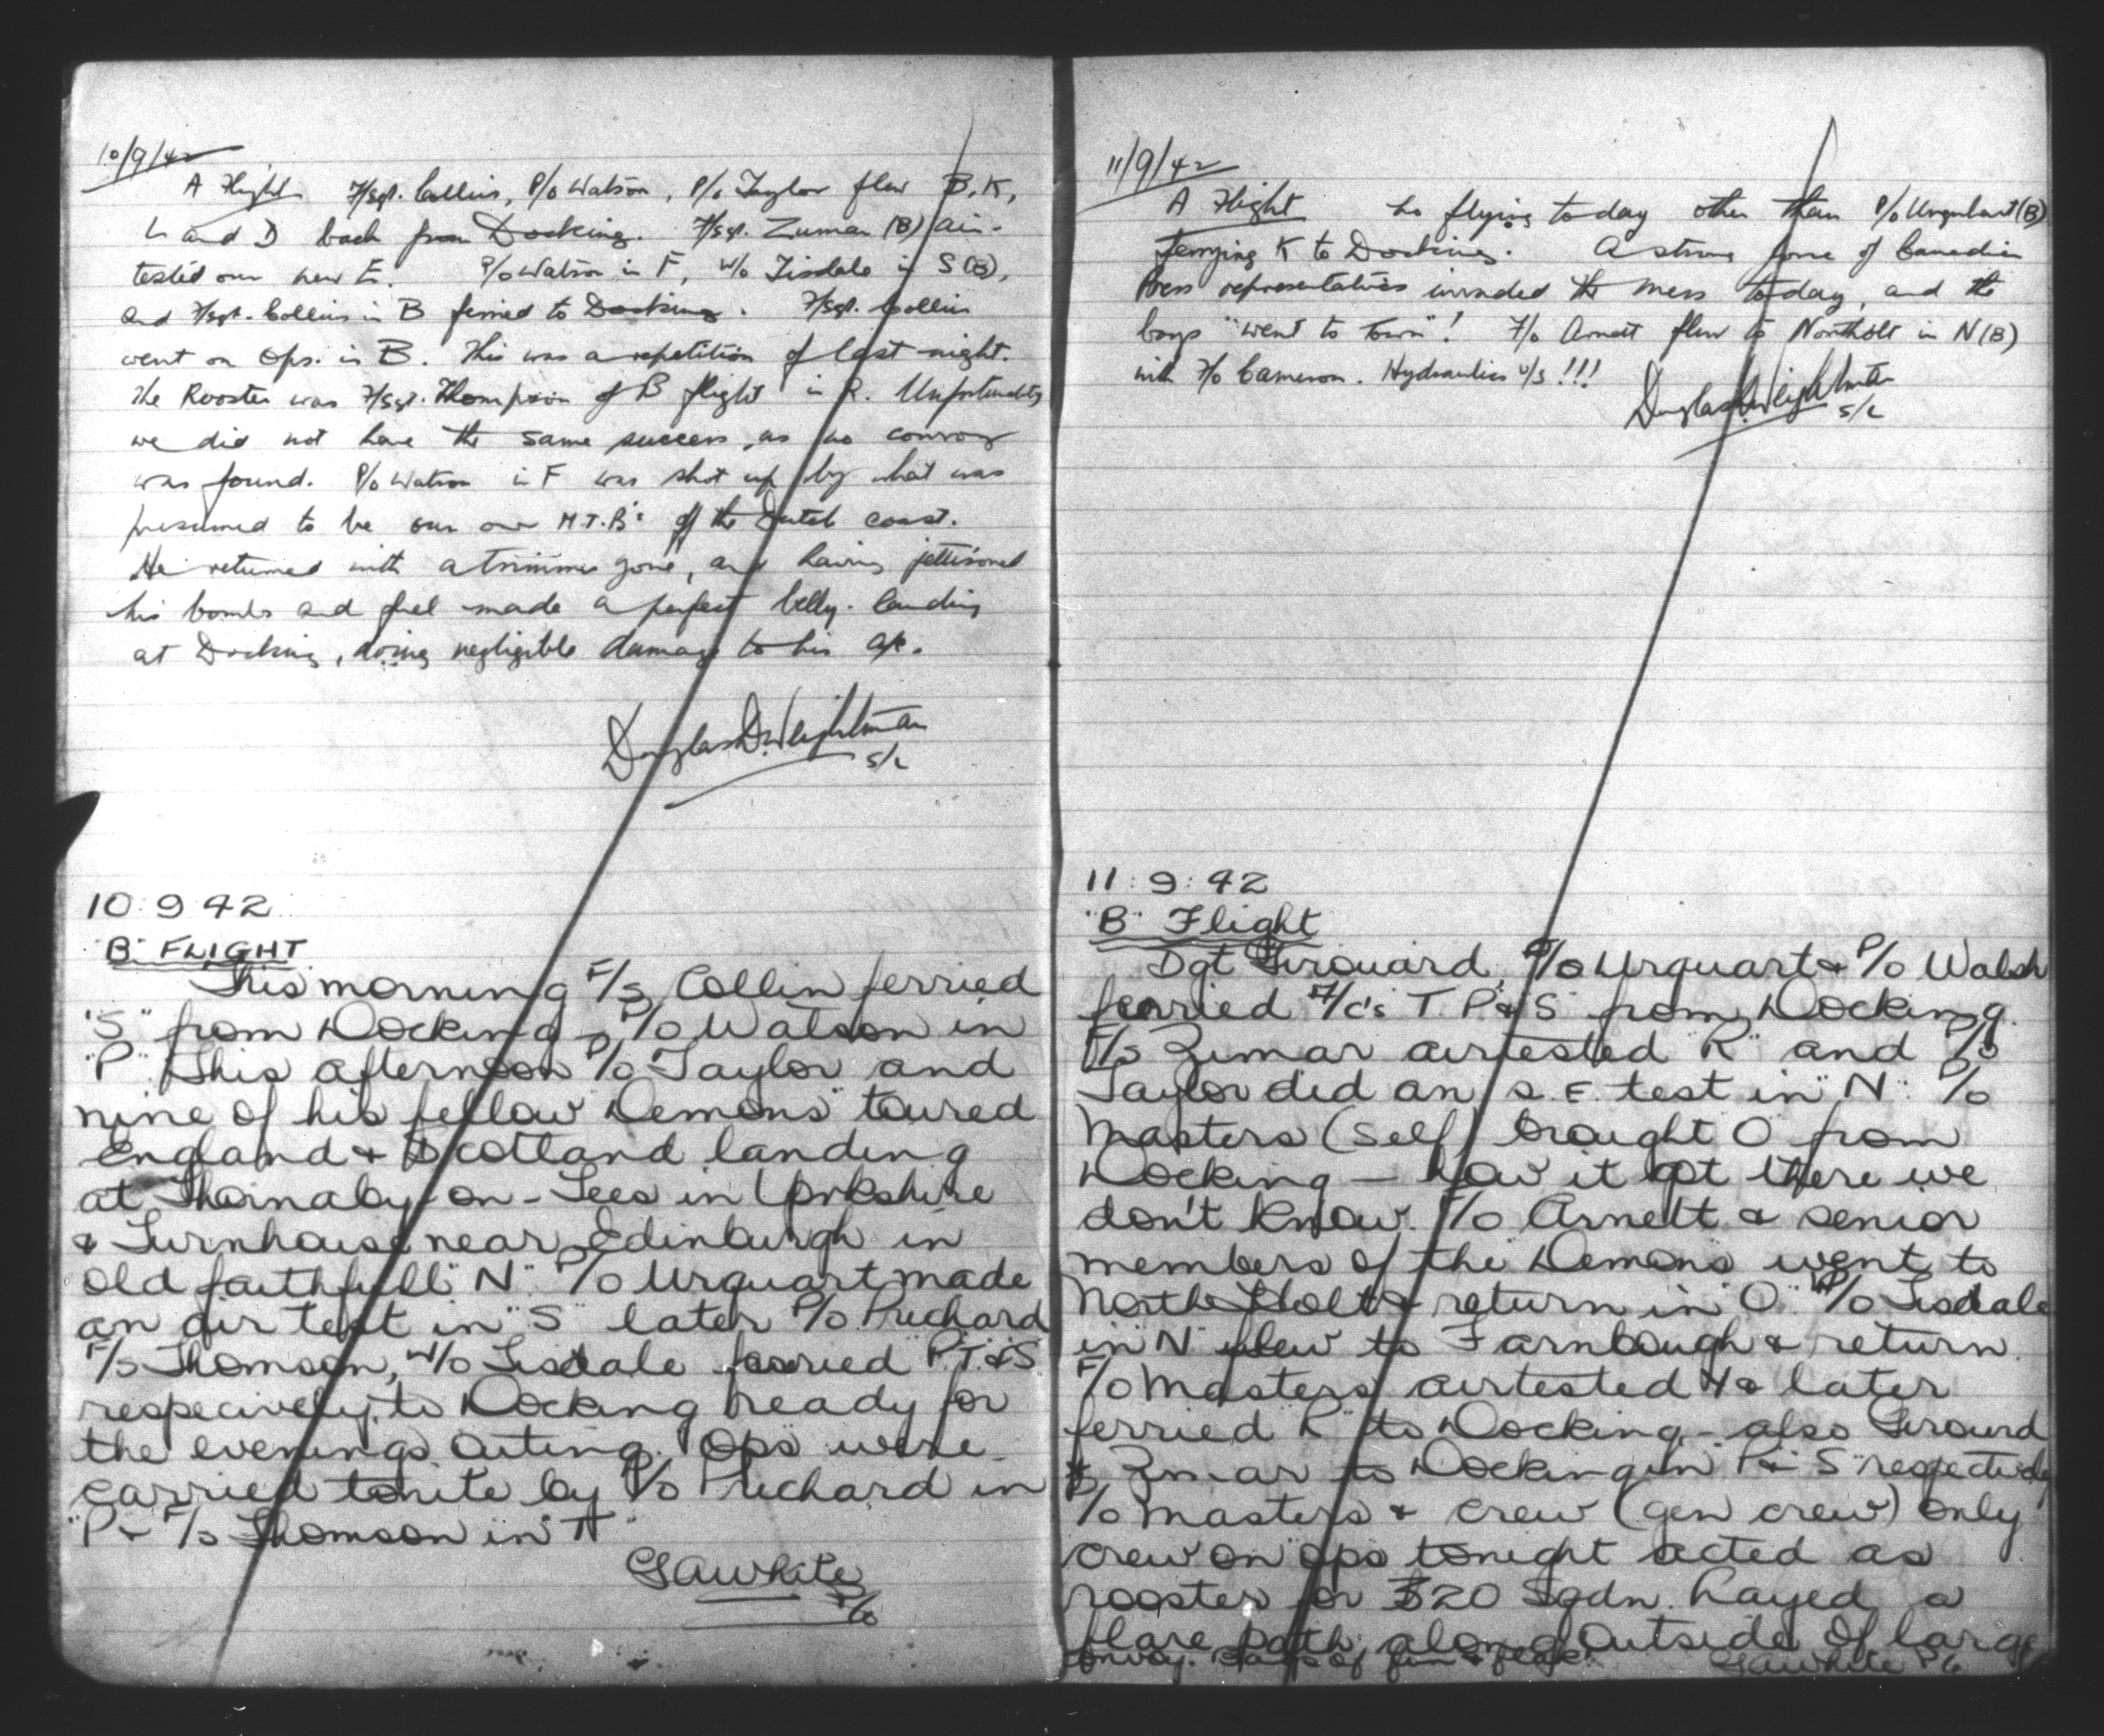 10/9/42
A Flight F/Sgt. Collins, P/O Watson, P/O Taylor flew B, K,
L and D back from Docking. F/Sgt. Zumar (B) air-
tested our new E. P/O Watson in F, W/O Tisdale in S (B),
and F/Sgt. Collins in B ferried to Docking. F/Sgt. Collins
went on Ops. in B. This was a repetition of last night.
The Rooster was F/Sgt. Thompson of B flight in R. Unfortunately
we did not have the same success, as no convoy
was found. P/O Watson in F was shot up by what was
presumed to be our own M.T.B's off the Dutch coast.
He returned with a trimmer gone, and having jettisoned
his bombs and fuel made a perfect belly-landing
at Docking, doing negligible damage to his a/c.
Douglas D. Weightman
S/L
10:9:42
"B" FLIGHT
This morning F/S Collin ferried
"S" from Docking - P/O Watson in
"P" This afternoon P/O Taylor and
nine of his fellow "Demons" toured
England & Scotland landing
at Thornaby-on-Tees in Yorkshire
& Turnhouse near Edinburgh in
old faithfull "N" P/O Urquart made
an air test in "S" later P/O Prichard
F/S Thomson, W/O Tisdale ferried P, T & S
respecively to Docking ready for
the evenings outing. Ops were
carried tonite by P/O Prichard in
"P" & F/S Thomson in "T"
GAWhite
P/O
11/9/42
A Flight No flying today other than P/O Urquhart (B)
ferrying K to Docking. A strong force of Canadian
Press representatives invaded the mess today, and the
boys "went to town"! F/O Arnett flew to Northolt in N (B)
with F/O Cameron. Hydraulics U/S!!!
Douglas D. Weightman
S/L
11:9:42
"B" Flight
Sgt Girouard, P/O Urquart & P/O Walsh
ferried A/c's T. P & S from Docking.
F/S Zumar airtested "R" and P/O
Taylor did an S.E. test in "N". P/O
Masters (self) brought O from
Docking - how it got there we
don't know. F/O Arnett & senior
members of the Demons went to
North Holt & return in "O" W/O Tisdale
in "N" flew to Farnbough & return.
P/O Masters airtested & later
ferried "R" to Docking - also Girourd
& Zumar to Docking in P & S respectively
P/O Masters & crew (gen crew) only
crew on ops tonight acted as
rooster for 320 Sqdn. Layed a
flare path along outside of large
convoy. of fun & flak. GAWhite P/O